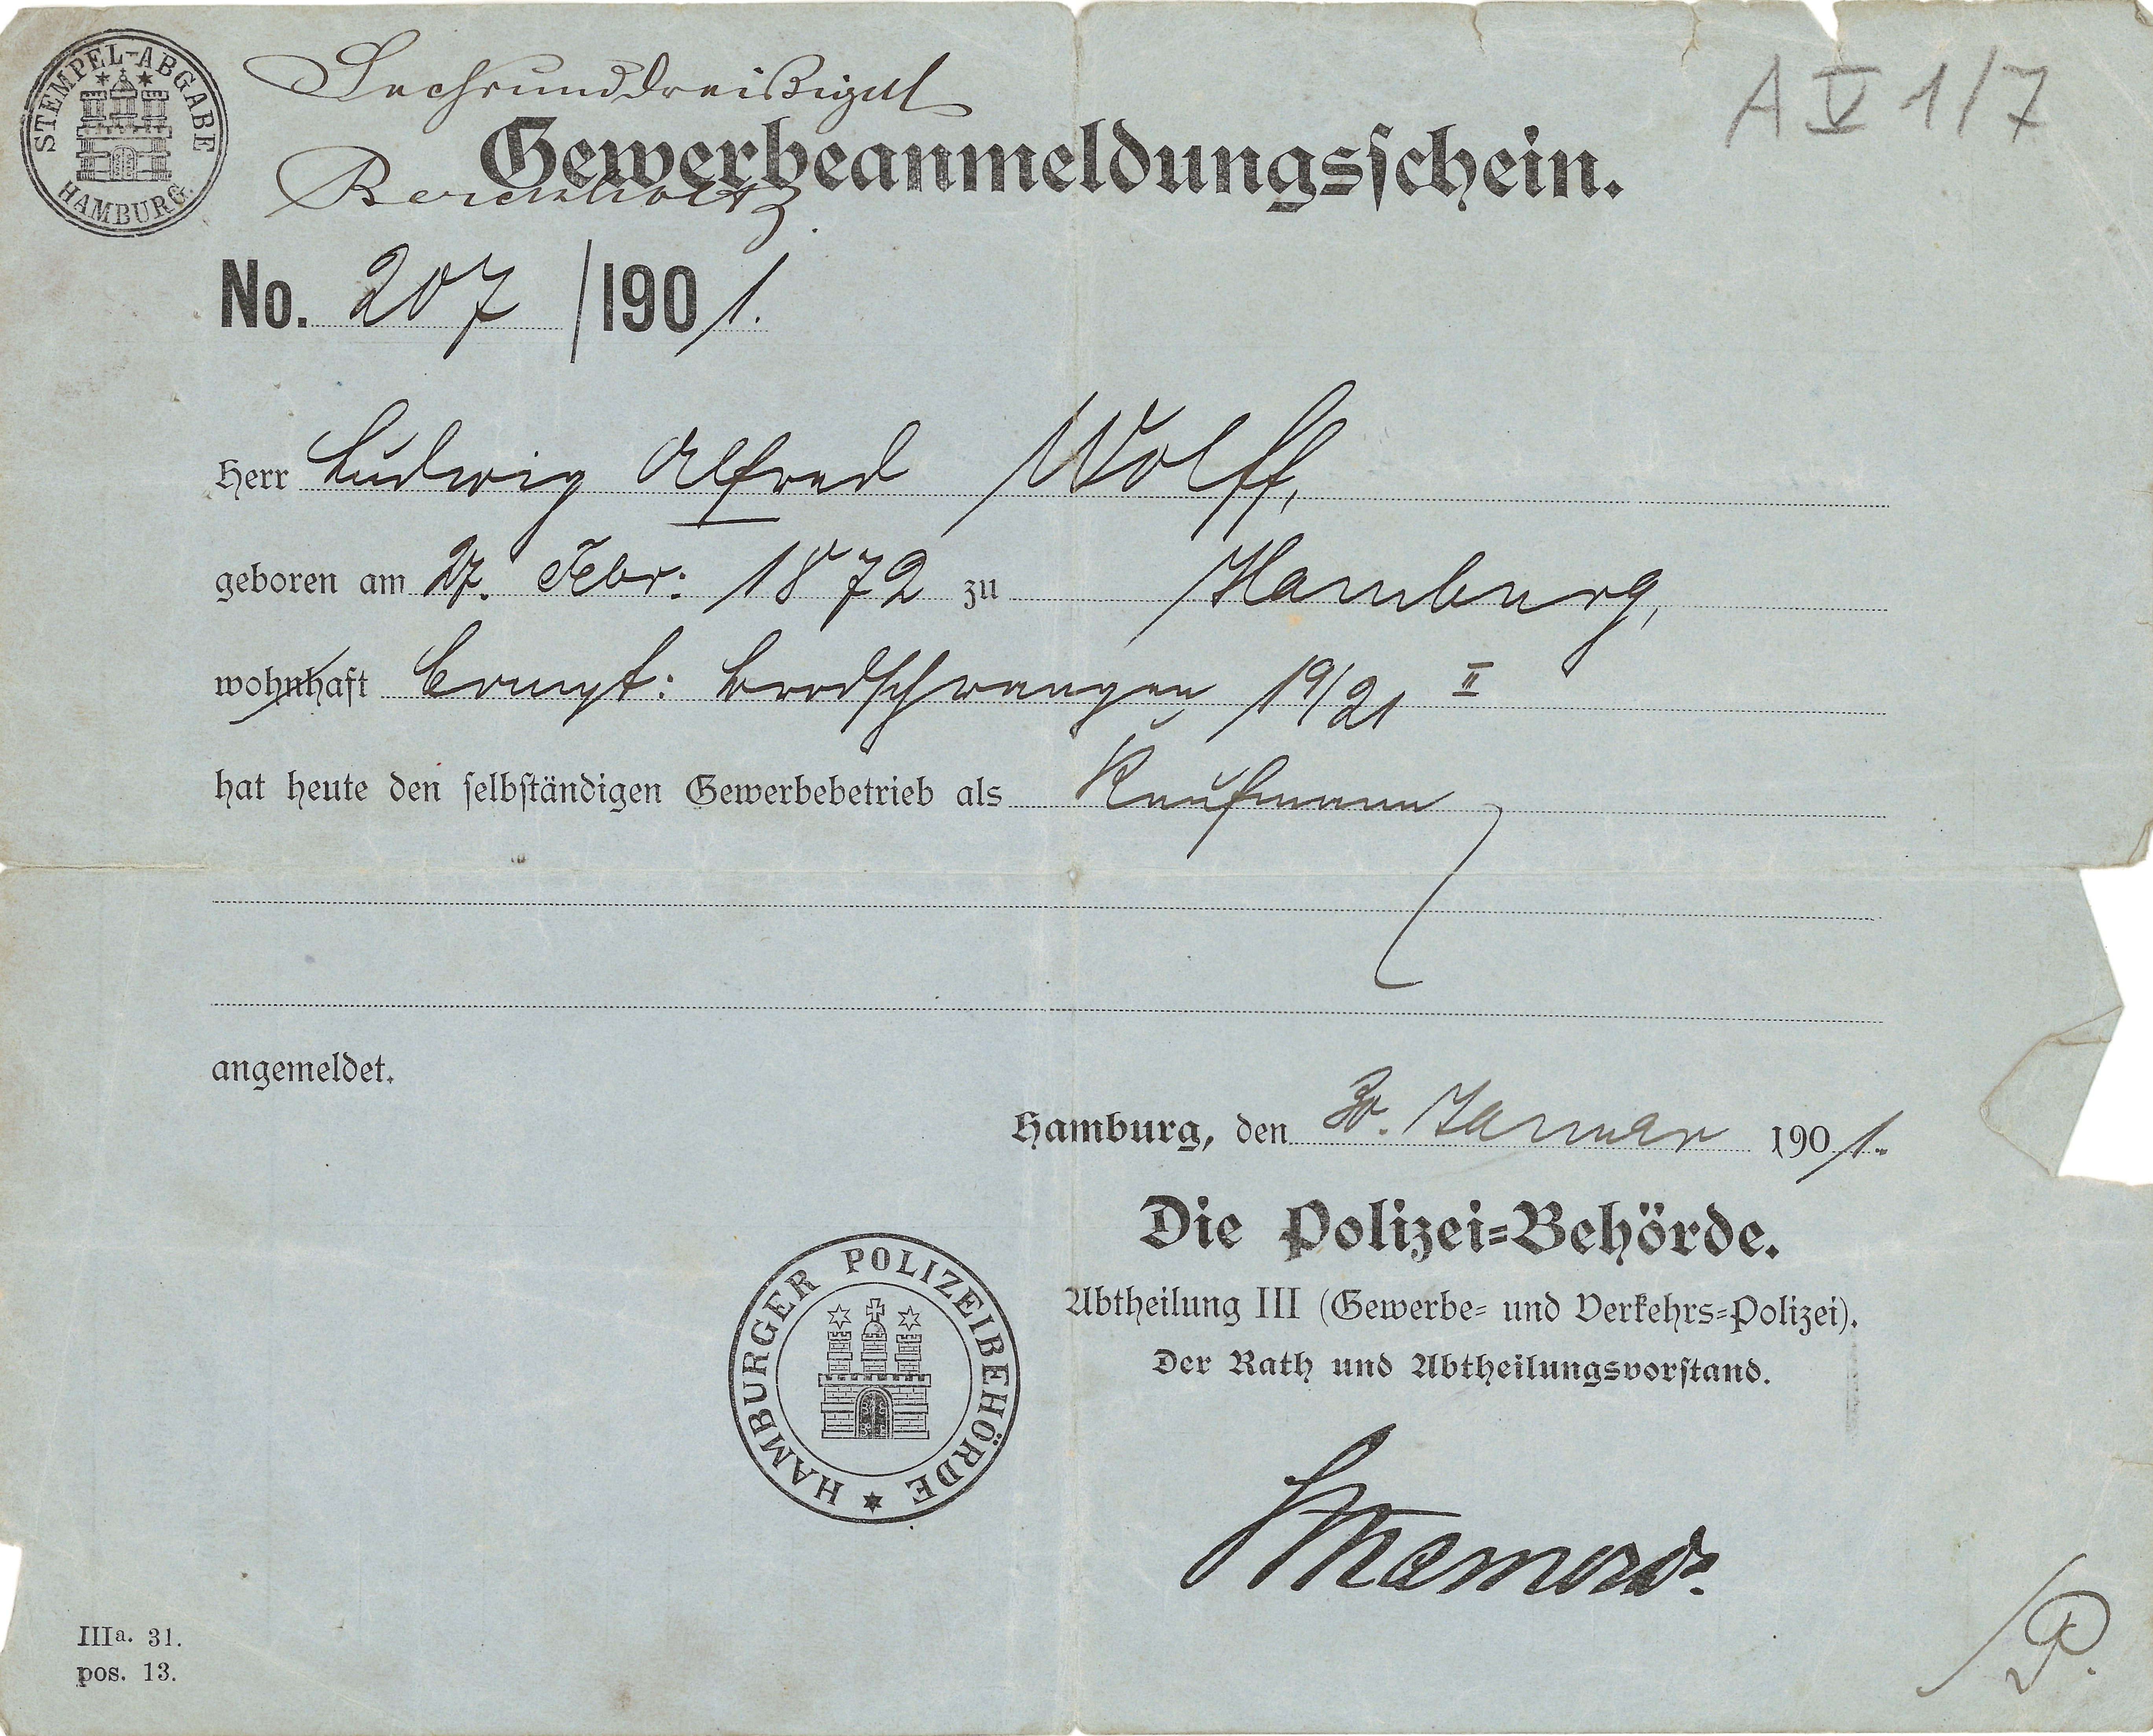 STEMPEL-ABGABE HAMBURG.
Sechsunddreißigst
A V 1/7
Gewerbeanmeldungsschein.
No. 207 / 1901.
Herr Ludwig Alfred Wolff,
geboren am 27. Febr: 1872 zu Hamburg,
wohnhaft Compt: Brodschrangen 19/21 II
hat heute den selbständigen Gewerbebetrieb als Kaufmann
angemeldet.
Hamburg, den 30. Januar 1901.
Die Polizei-Behörde.
Abtheilung III (Gewerbe- und Verkehrs-Polizei).
Der Rath und Abtheilungsvorstand.
HAMBURGER POLIZEIBEHÖRDE
IIIa. 31.
pos. 13.